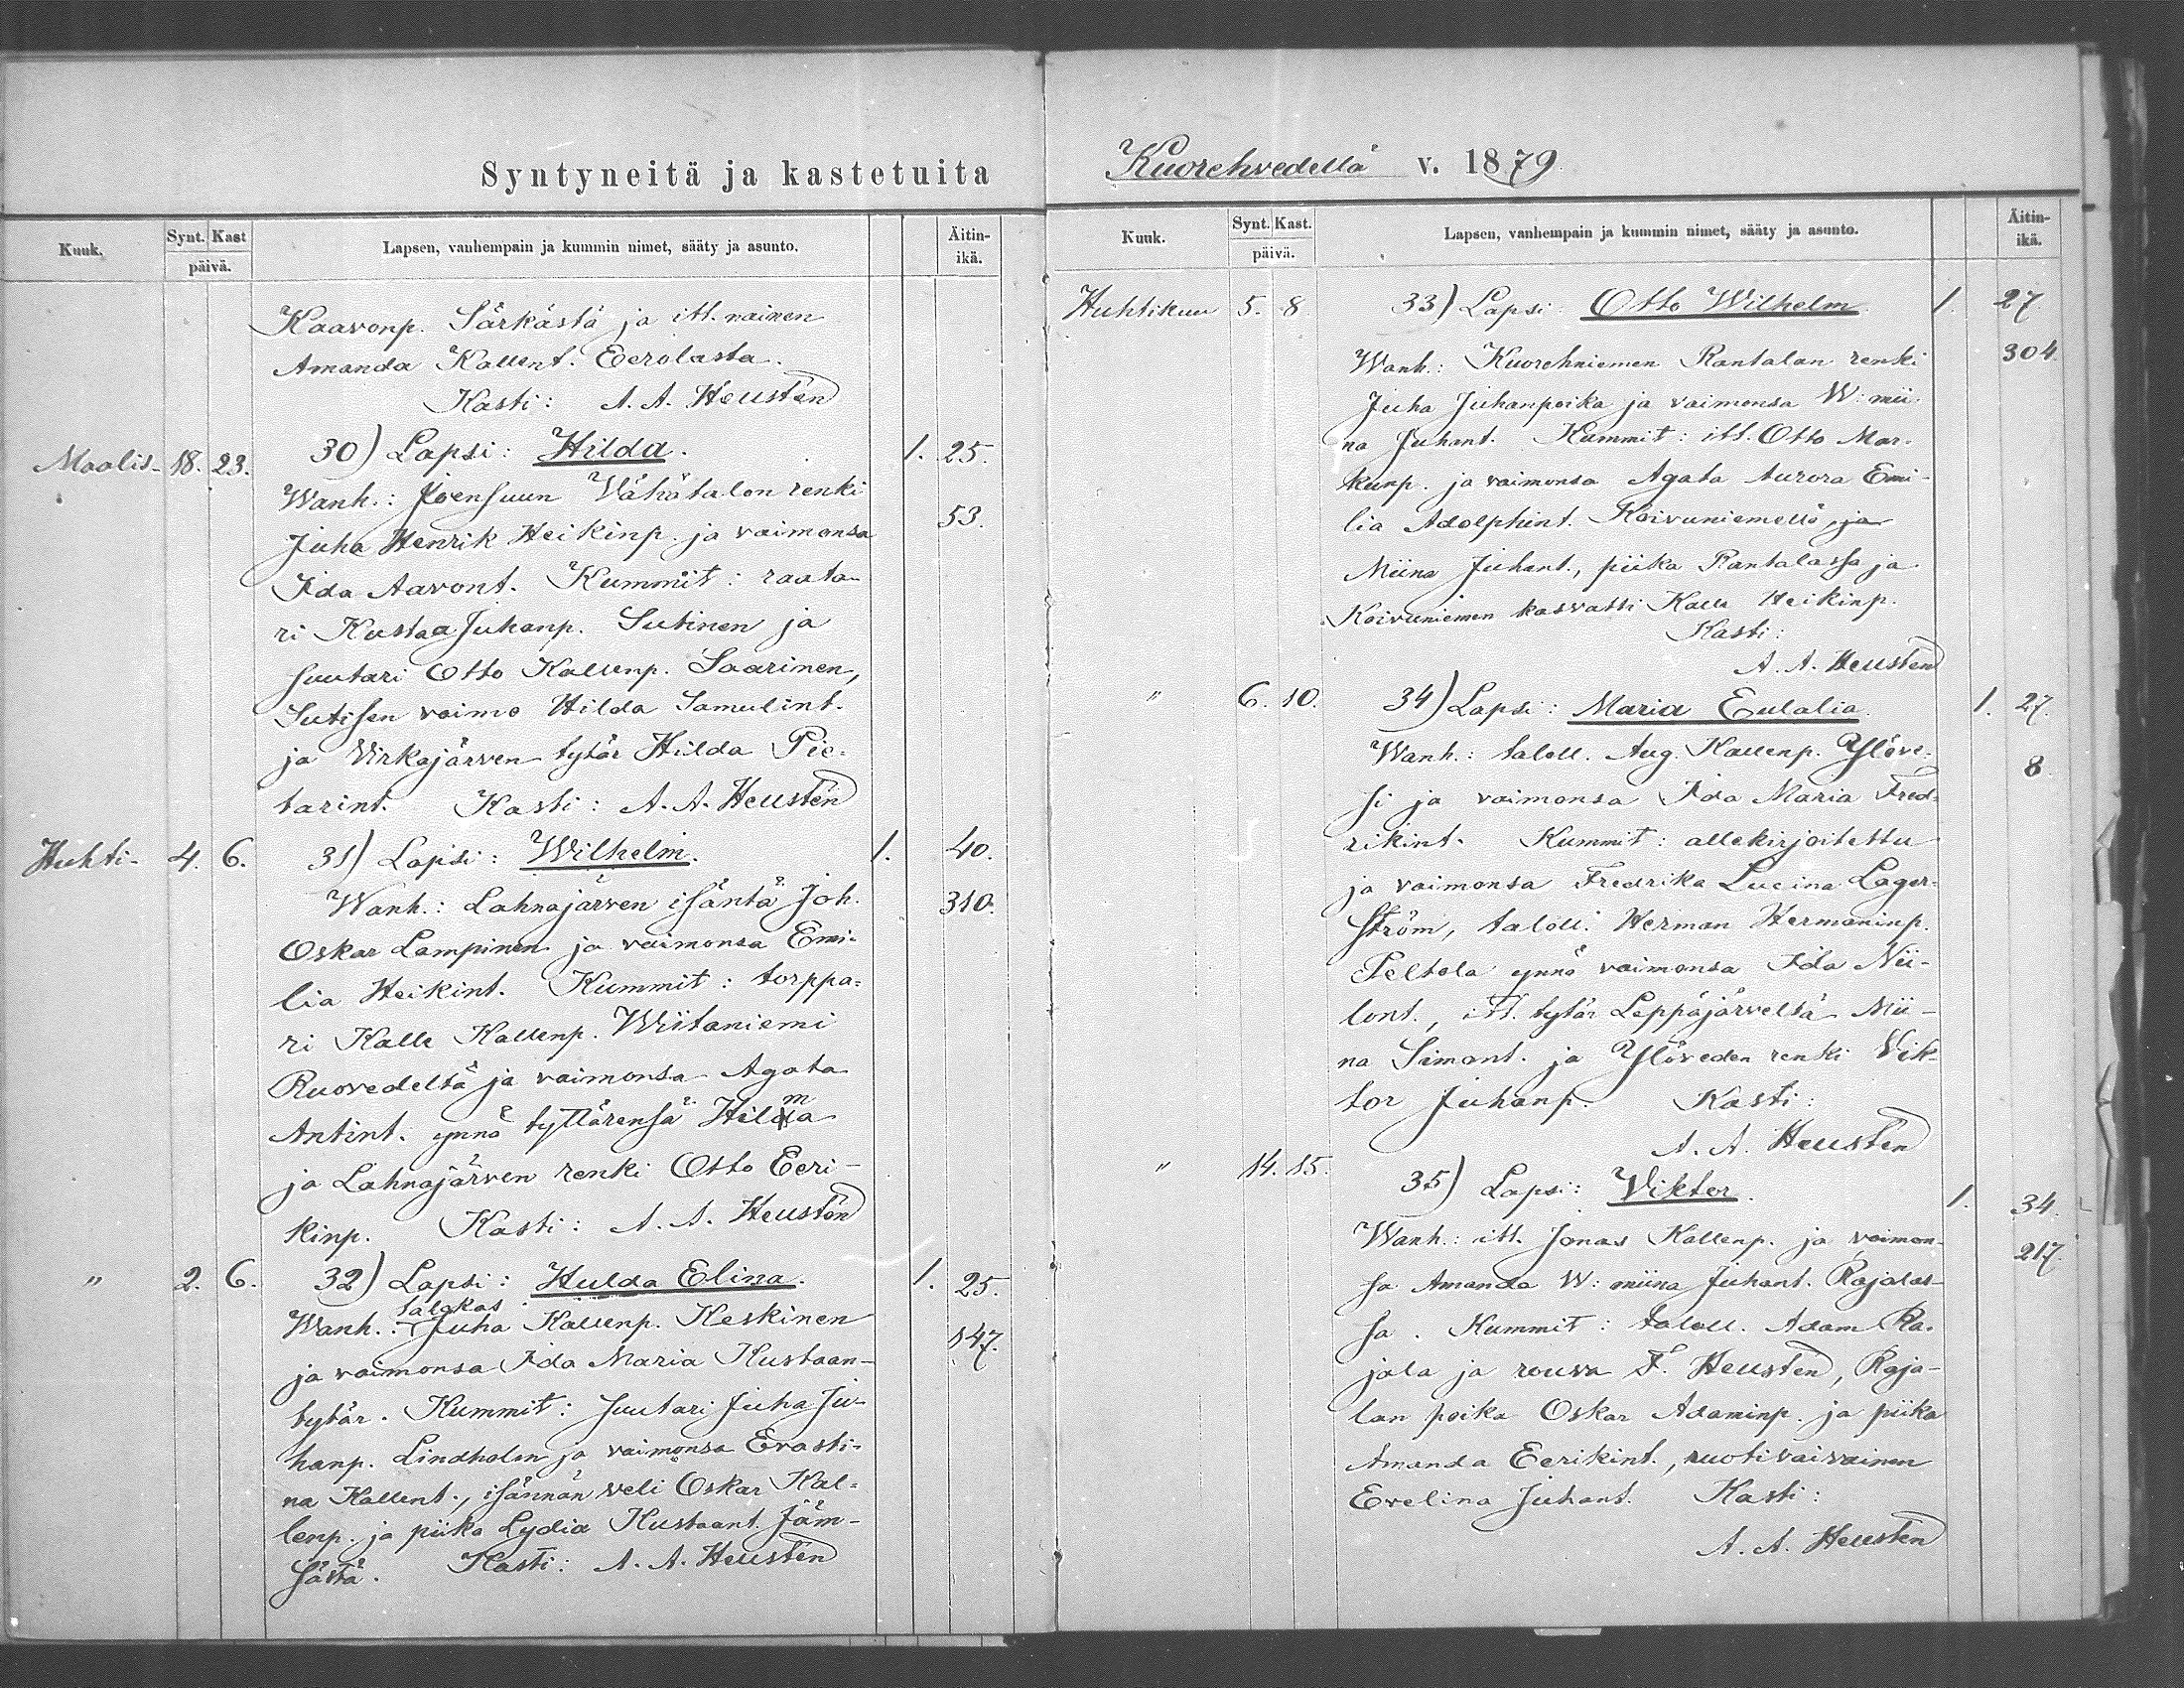 Syntyneitä ja kastetuita
Kuuk.
Synt. Kast
päivä.
Lapsen, vanhempain ja kummin nimet, sääty ja asunto.
Äitin-
ikä.
Kaavonp. Särkästä ja itl. nainen
Amanda Kallent. Eerolasta.
Kasti: A. A. Heustén
Maalis- 18. 23. 30) Lapsi: Hilda. 1. 25.
Wanh.: Joensuun Vähätalon renki
53.
Juha Henrik Heikinp. ja vaimonsa
Ida Aavont. Kummit: raata-
ri Kustaa Juhanp. Sutinen ja
suutari Otto Kallenp. Saarinen,
Sutisen vaimo Hilda Samulint.
ja Virkajärven tytär Hilda Pie-
tarint. Kasti: A. A. Heustén
Huhti- 4. 6. 31) Lapsi: Wilhelm. 1. 40.
Wanh.: Lahnajärven isäntä Joh.
310.
Oskar Lampinen ja vaimonsa Emi-
lia Heikint. Kummit: torppa-
ri Kalle Kallenp. Wiitaniemi
Ruovedeltä ja vaimonsa Agata
Antint. ynnä tyttärensä Hilma
ja Lahnajärven renki Otto Eeri-
kinp. Kasti: A. A. Heustén
" 2. 6. 32) Lapsi: Hulda Elina. 1. 25.
talokas
Wanh.: Juha Kallenp. Keskinen
147.
ja vaimonsa Ida Maria Kustaan-
tytär. Kummit: Suutari Juha Ju-
hanp. Lindholm ja vaimonsa Evasti-
na Kallent., isännän veli Oskar Kal-
lenp. ja piika Lydia Kustaant. Jäm-
sästä. Kasti: A. A. Heustén
Kuorehvedellä v. 1879
Kuuk.
Synt. Kast.
päivä.
Lapsen, vanhempain ja kummin nimet, sääty ja asunto.
Äitin-
ikä.
Huhtikuu 5. 8 33) Lapsi: Otto Wilhelm. 1. 27.
Wanh.: Kuorehniemen Rantalan renki
304.
Juha Juhanpoika ja vaimonsa W:mii-
na Juhant. Kummit: itl. Otto Mar-
kunp. ja vaimonsa Agata Aurora Emi-
lia Adolphint. Koivuniemellä, ja
Miina Juhant., piika Rantalassa ja
Koivuniemen kasvatti Kalle Heikinp.
Kasti:
A. A. Heustén
" 6. 10. 34) Lapsi: Maria Eulalia. 1. 27.
Wanh.: taloll. Aug. Kallenp. Ylöve-
8.
si ja vaimonsa Ida Maria Fred-
rikint. Kummit: allekirjoitettu
ja vaimonsa Fredrika Lucina Lager-
ström, taloll. Herman Hermaninp.
Peltola ynnä vaimonsa Ida Nii-
lont., itl. tytär Leppäjärveltä Mii-
na Simont. ja Ylöveden renki Vik-
tor Juhanp. Kasti:
A. A. Heustén
" 14. 15. 35) Lapsi: Viktor. 1. 34.
Wanh.: itl. Jonas Kallenp. ja vaimon-
217.
sa Amanda W:miina Juhant. Rajalas-
sa. Kummit: taloll. Adam Ra-
jala ja rouva F. Heustén, Raja-
lan poika Oskar Adaminp. ja piika
Amanda Eerikint., ruotivaivainen
Evelina Juhant. Kasti:
A. A. Heustén